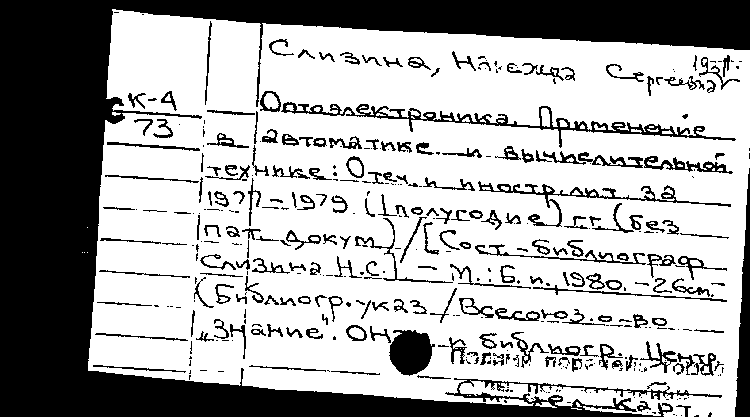 Слизина, Надежда Сергеевна
К-4
73
Оптоэлектроника. Применение
в автоматике и вычислительной
технике: Отеч. и иностр. лит. за
1977-1979 (I полугодие) г.г. (без
пат. докум.) / [Сост.-библиограф
Слизина Н.С.] - М.: Б.и., 1980. - 26 ст. -
(Библиогр. указ / Всесоюз. о-во
"Знание". и библиогр., Центр.
Полный перечень
карт.